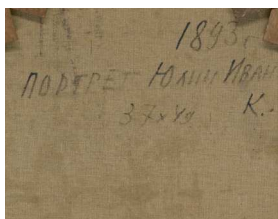 1893г.
ПОРТРЕТ Юлии Иван
37х49 К.